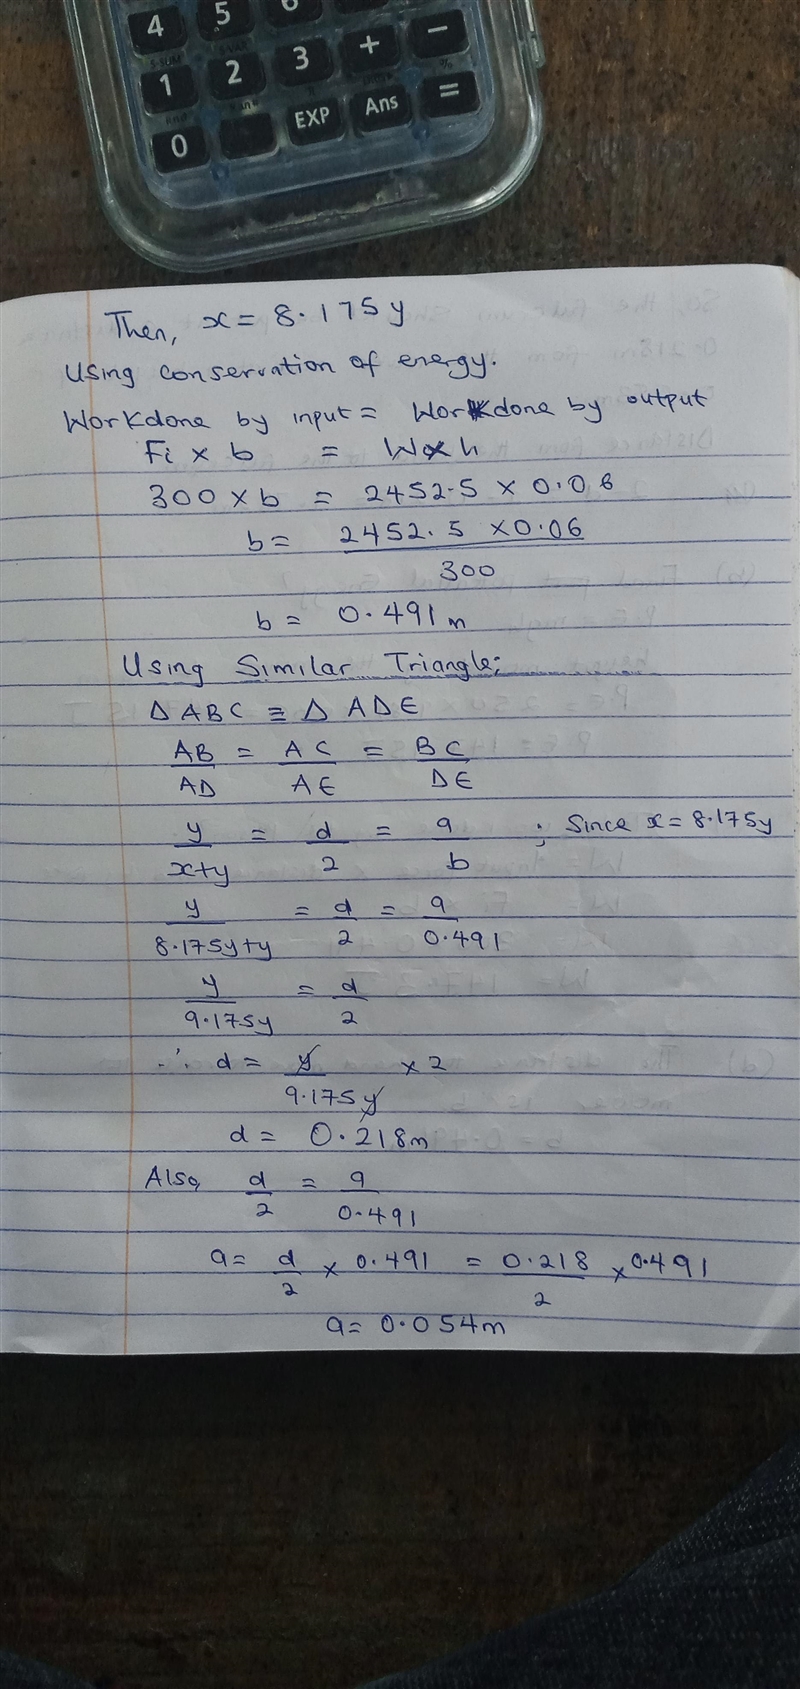 4 5 6
1 2 3 + −
0 EXP Ans =
Then, x = 8.175y
Using conservation of energy.
Workdone by input = Workdone by output
Fi × b = W×h
300 × b = 2452.5 × 0.06
b = 2452.5 × 0.06
300
b = 0.491m
Using Similar Triangle;
Δ ABC ≡ Δ ADE
AB/AD = AC/AE = BC/DE
y/x+y = d/2 = a/b ; Since x = 8.175y
y/8.175y+y = d/2 = a/0.491
y/9.175y = d/2
∴ d = y/9.175y × 2
d = 0.218m
Also, d/2 = a/0.491
a = d/2 × 0.491 = 0.218/2 × 0.491
a = 0.054m